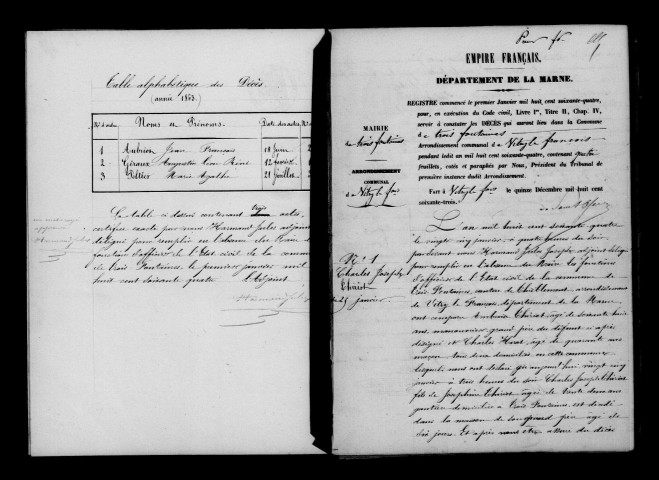 Table alphabétique des Décès
(année 1863.)
Nos d'ordre Noms et Prénoms. Date des actes
1 Aubrion Jean François 18 juin
2 Géraux Augustin Léon René 12
3 Peltier Marie Agathe 21 juillet
La table ci dessus contenant trois actes,
certifiée exacte par nous Harmand Jules adjoint
délégué pour remplir en l'absence du Maire les
fonctions d'officier de l'Etat civil de la commune
de Trois Fontaines, le premier janvier mil
huit cent soixante quatre L'Adjoint
EMPIRE FRANÇAIS.
DÉPARTEMENT DE LA MARNE.
MAIRIE
de trois fontaines
ARRONDISSEMENT
COMMUNAL
de Vitry le fois
REGISTRE commencé le premier Janvier mil huit cent soixante-quatre,
pour, en exécution du Code civil, Livre Ier, Titre II, Chap. IV,
servir à constater les DÉCÈS qui auront lieu dans la Commune
de trois fontaines
Arrondissement communal de Vitry le françois
pendant ledit an mil huit cent soixante-quatre, contenant quatre
feuillets, cotés et paraphés par Nous, Président du Tribunal de
première instance dudit Arrondissement.
FAIT à Vitry le fois le quinze Décembre mil huit cent
soixante-trois.
N° 1
Charles Joseph
Thirot
25 janvier
L'an mil huit cent soixante quatre
le vingt cinq janvier, à quatre heures du soir
pardevant nous Harmand Jules Joseph adjoint délégué
pour remplir en l'absence du Maire les fonctions
d'officier de l'Etat civil de la commune de
Trois Fontaines, canton de Thiéblemont, arrondissement
de Vitry le François département de la Marne,
ont comparu Ambroise Thirot âgé de soixante huit
ans, manouvrier, grand père du défunt ci après
désigné et Charles âgé de quarante ans
tous deux domiciliés en cette commune
lesquels nous ont déclaré que aujourd'hui vingt cinq
janvier à trois heures du soir Charles Joseph Thirot
fils de Joséphine Thirot âgée de trente deux ans
domiciliée à Trois Fontaines, est décédé
dans la maison de son grand père âgé de
dix jours. Et après nous être assuré du décès